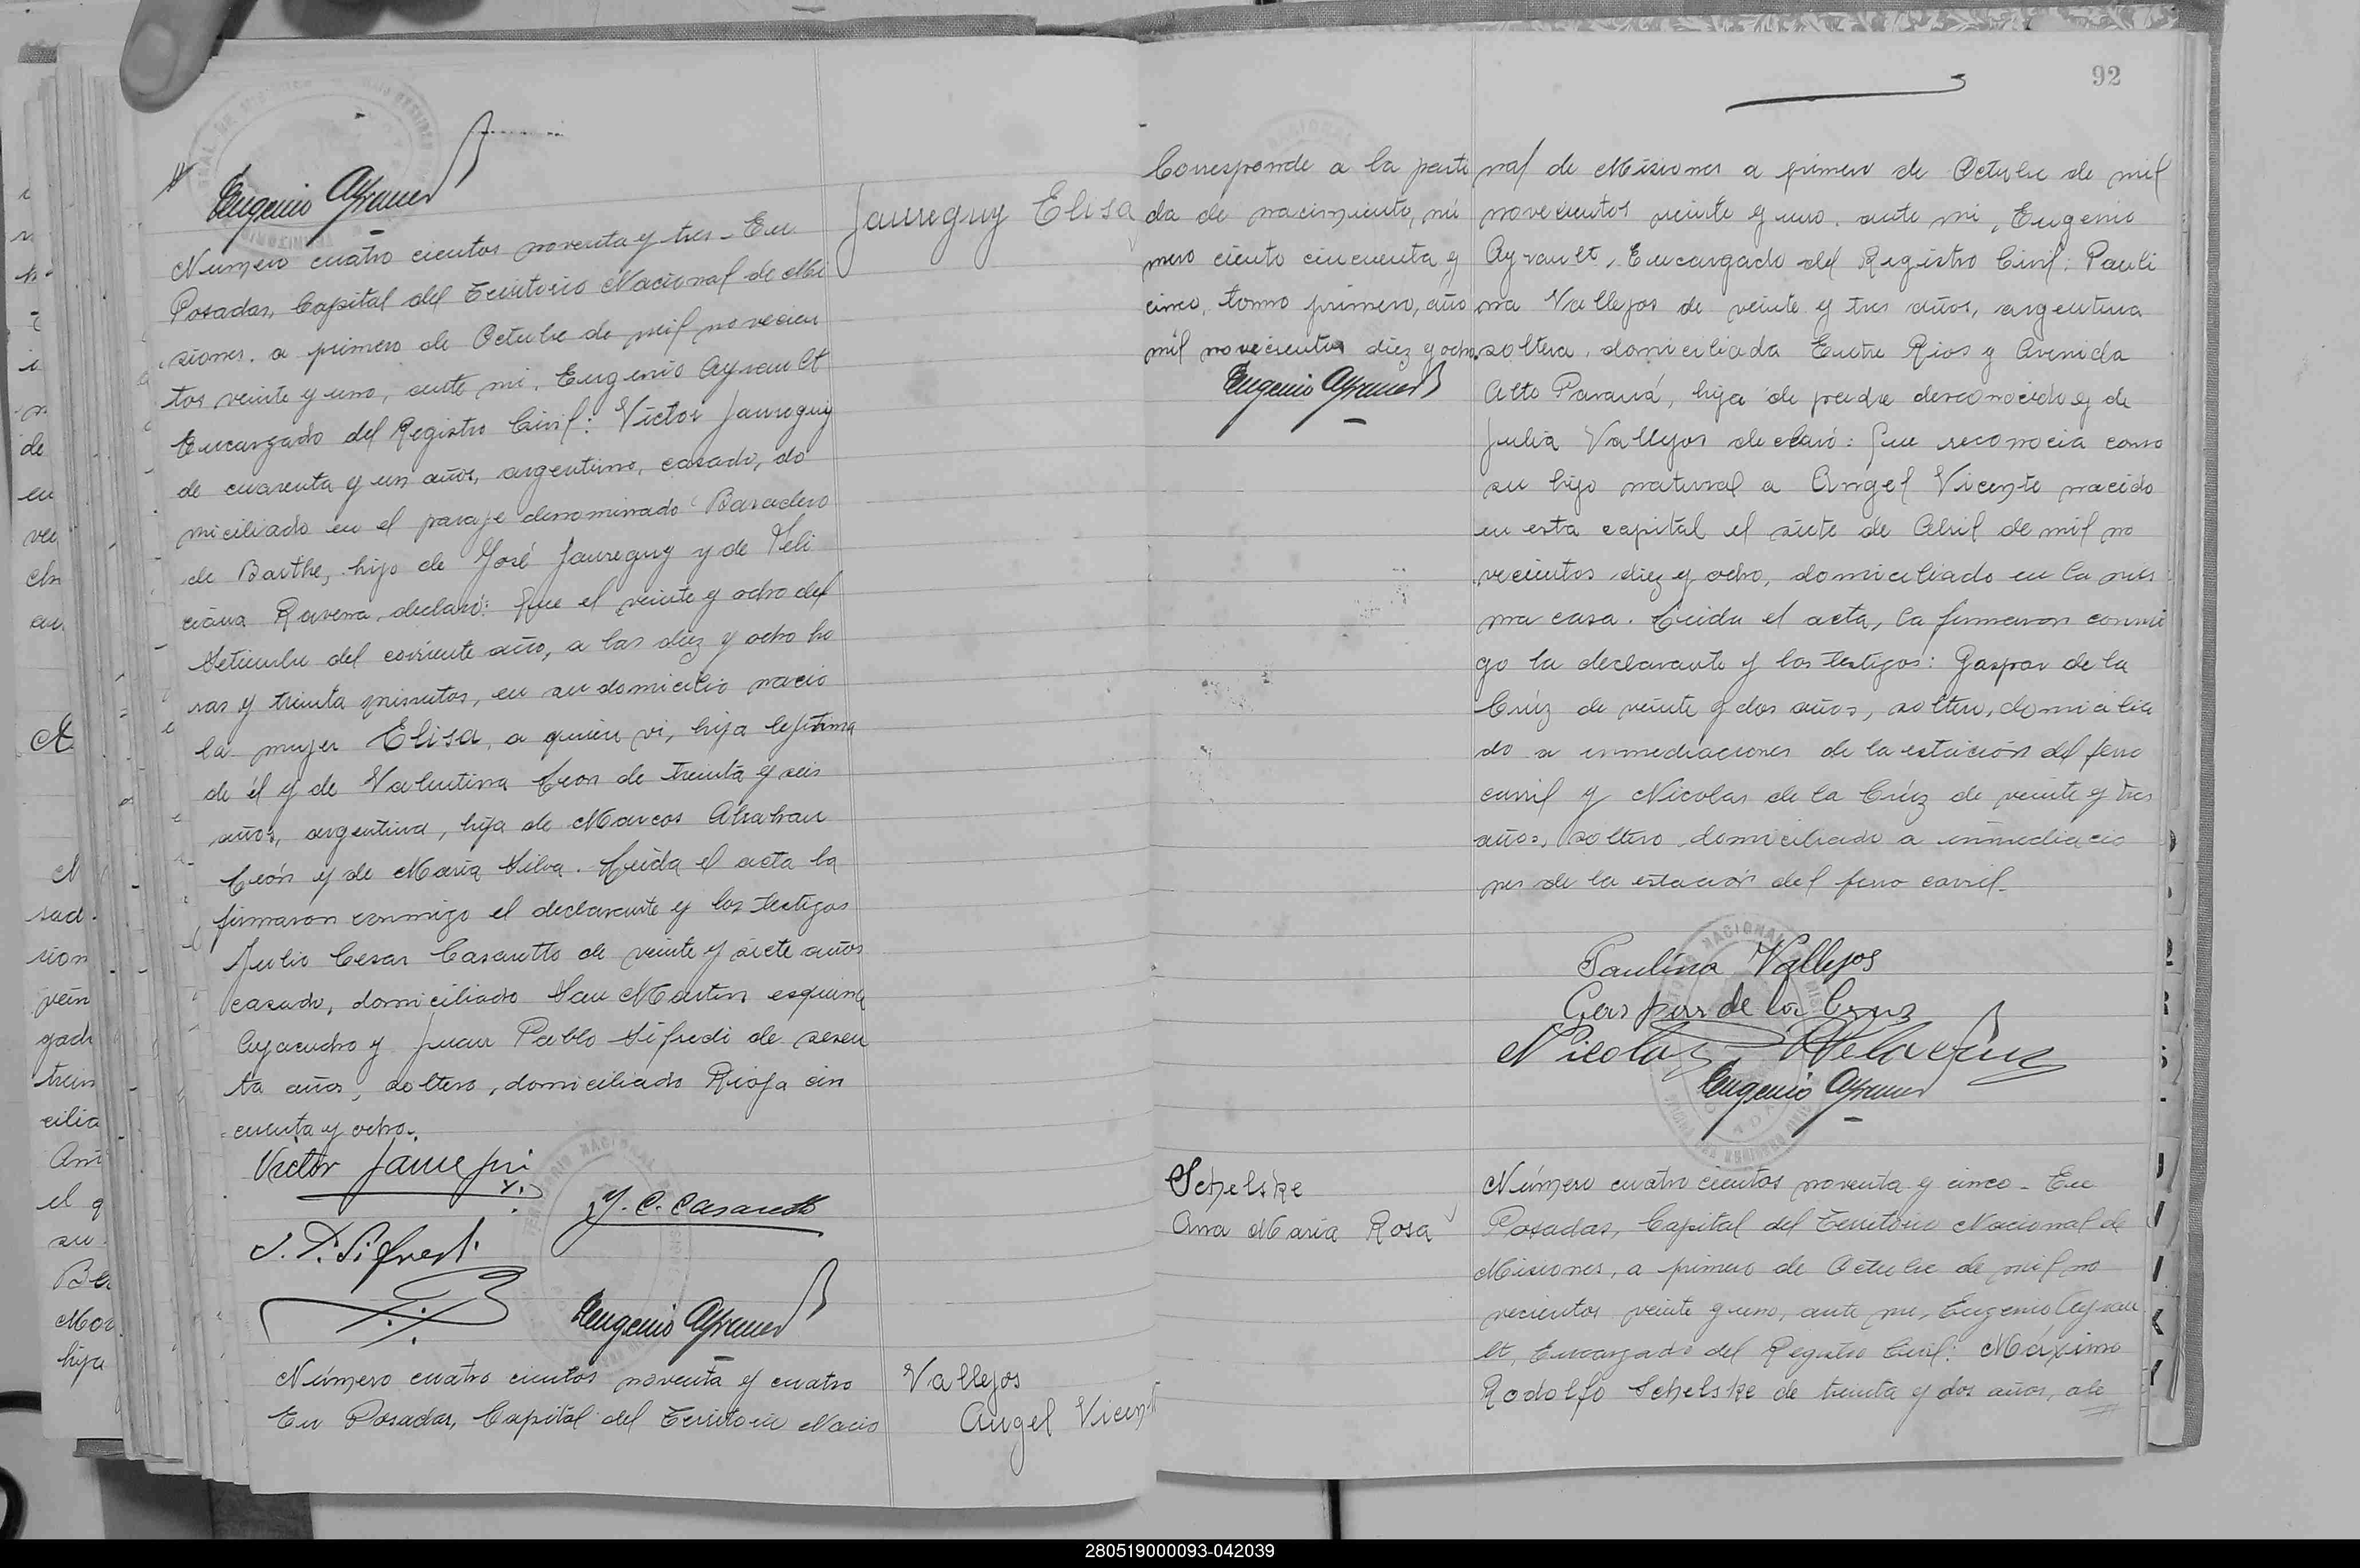 Eugenio Ayrault
Número cuatro cientos noventa y tres - En
Posadas, Capital del Territorio Nacional de Mi
siones, a primero de Octubre de mil novecien
tos veinte y uno, ante mi, Eugenio Ayrault
Encargado del Registro Civil: Victor Jaureguy
de cuarenta y un años, argentino, casado, do
miciliado en el paraje denominado Baradero
de Barthe, hijo de José Jaureguy y de Feli
ciana Ravena, declaró: Que el veinte y ocho del
Setiembre del corriente año, a las diez y ocho ho
ras y treinta minutos, en su domicilio nacio
la mujer Elisa, a quien vi, hija legitima
de él y de Valentina Leon de treinta y seis
años, argentina, hija de Marcos Abrahan
León y de Maria Silva. Leida el acta la
firmaron conmigo el declarante y los testigos
Julio Cesar Casaretto de veinte y siete años
casado, domiciliado San Martin esquina
Ayacucho y Juan Pablo Sifredi de sesen
ta años, soltero, domiciliado Rioja cin
cuenta y ocho.
Victor Jauregui
J. C. Casaretto
J. P. Sifredi
Eugenio Ayrault
Número cuatro cientos noventa y cuatro
En Posadas, Capital del Territorio Nacio
Jaureguy Elisa
Vallejos
Angel Vicente
92
Corresponde a la parti
da de nacimiento, nú
mero ciento cincuenta y
cinco, tomo primero, año
mil novecientos diez y ocho.
Eugenio Ayrault
nal de Misiones a primero de Octubre de mil
novecientos veinte y uno, ante mi, Eugenio
Ayrault, Encargado del Registro Civil: Pauli
na Vallejos de veinte y tres años, argentina
soltera, domiciliada Entre Rios y Avenida
Alto Paraná, hija de padre desconocido y de
Julia Vallejos declaró: Que reconocia como
su hijo natural a Angel Vicente nacido
en esta capital el siete de Abril de mil no
vecientos diez y ocho, domiciliado en la mis
ma casa. Leida el acta, la firmaron conmi
go la declarante y los testigos: Gaspar de la
Crúz de veinte y dos años, soltero, domicilia
do a inmediaciones de la estación del ferro
carril y Nicolas de la Crúz de veinte y tres
años, soltero, domiciliado a inmediacio
nes de la estación del ferro carril.
Paulina Vallejos
Gaspar de la Cruz
Nicolas Delacruz
Eugenio Ayrault
Schelske
Ana Maria Rosa
Número cuatro cientos noventa y cinco - En
Posadas, Capital del Territorio Nacional de
Misiones, a primero de Octubre de mil no
vecientos veinte y uno, ante mi, Eugenio Ayrau
lt, Encargado del Registro Civil: Máximo
Rodolfo Schelske de treinta y dos años, ale
280519000093-042039